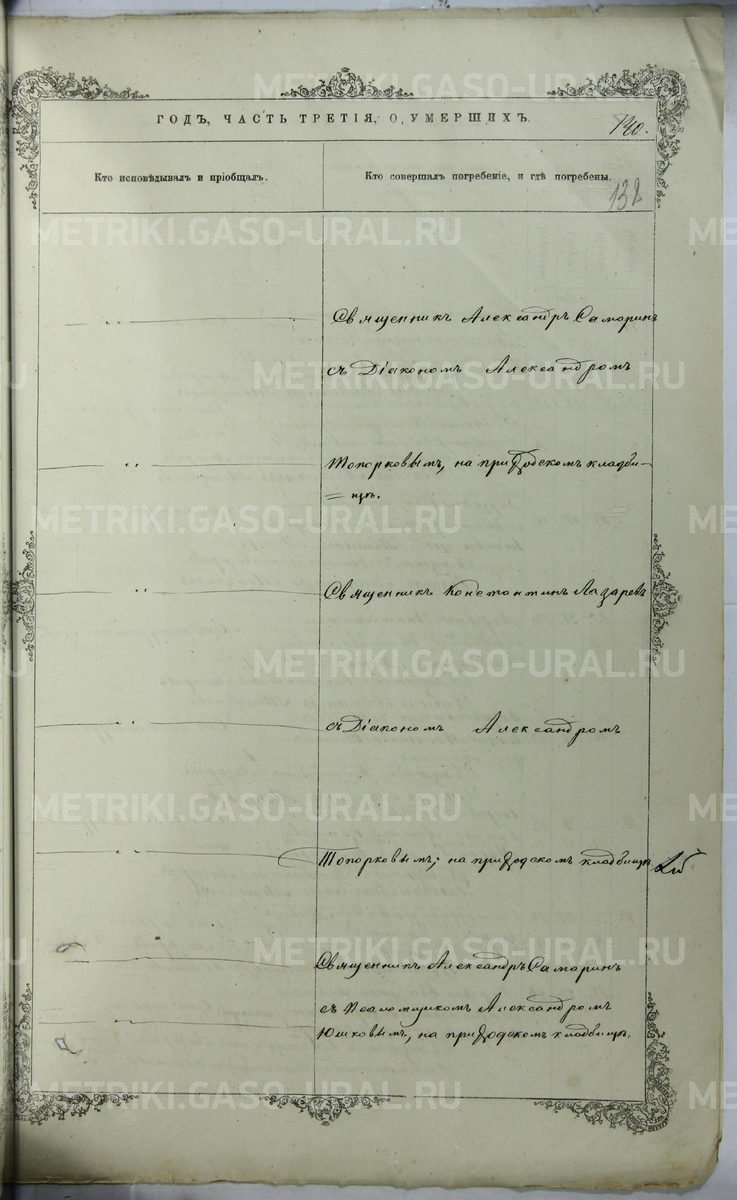 ГОДЪ, ЧАСТЬ ТРЕТІЯ, О УМЕРШИХЪ.
140.
Кто исповѣдывалъ и пріобщалъ.
Кто совершалъ погребеніе, и гдѣ погребены.
138
Священникъ Александръ Самаринъ
съ Діакономъ Александромъ
Топорковымъ, на приходскомъ кладби-
=щѣ.
Священникъ Константинъ Лазаревъ
съ Діакономъ Александромъ
Топорковымъ, на приходскомъ кладбищѣ
Священникъ Александръ Самаринъ
съ Псаломщикомъ Александромъ
Юшковымъ, на приходскомъ кладбищѣ.
METRIKI.GASO-URAL.RU